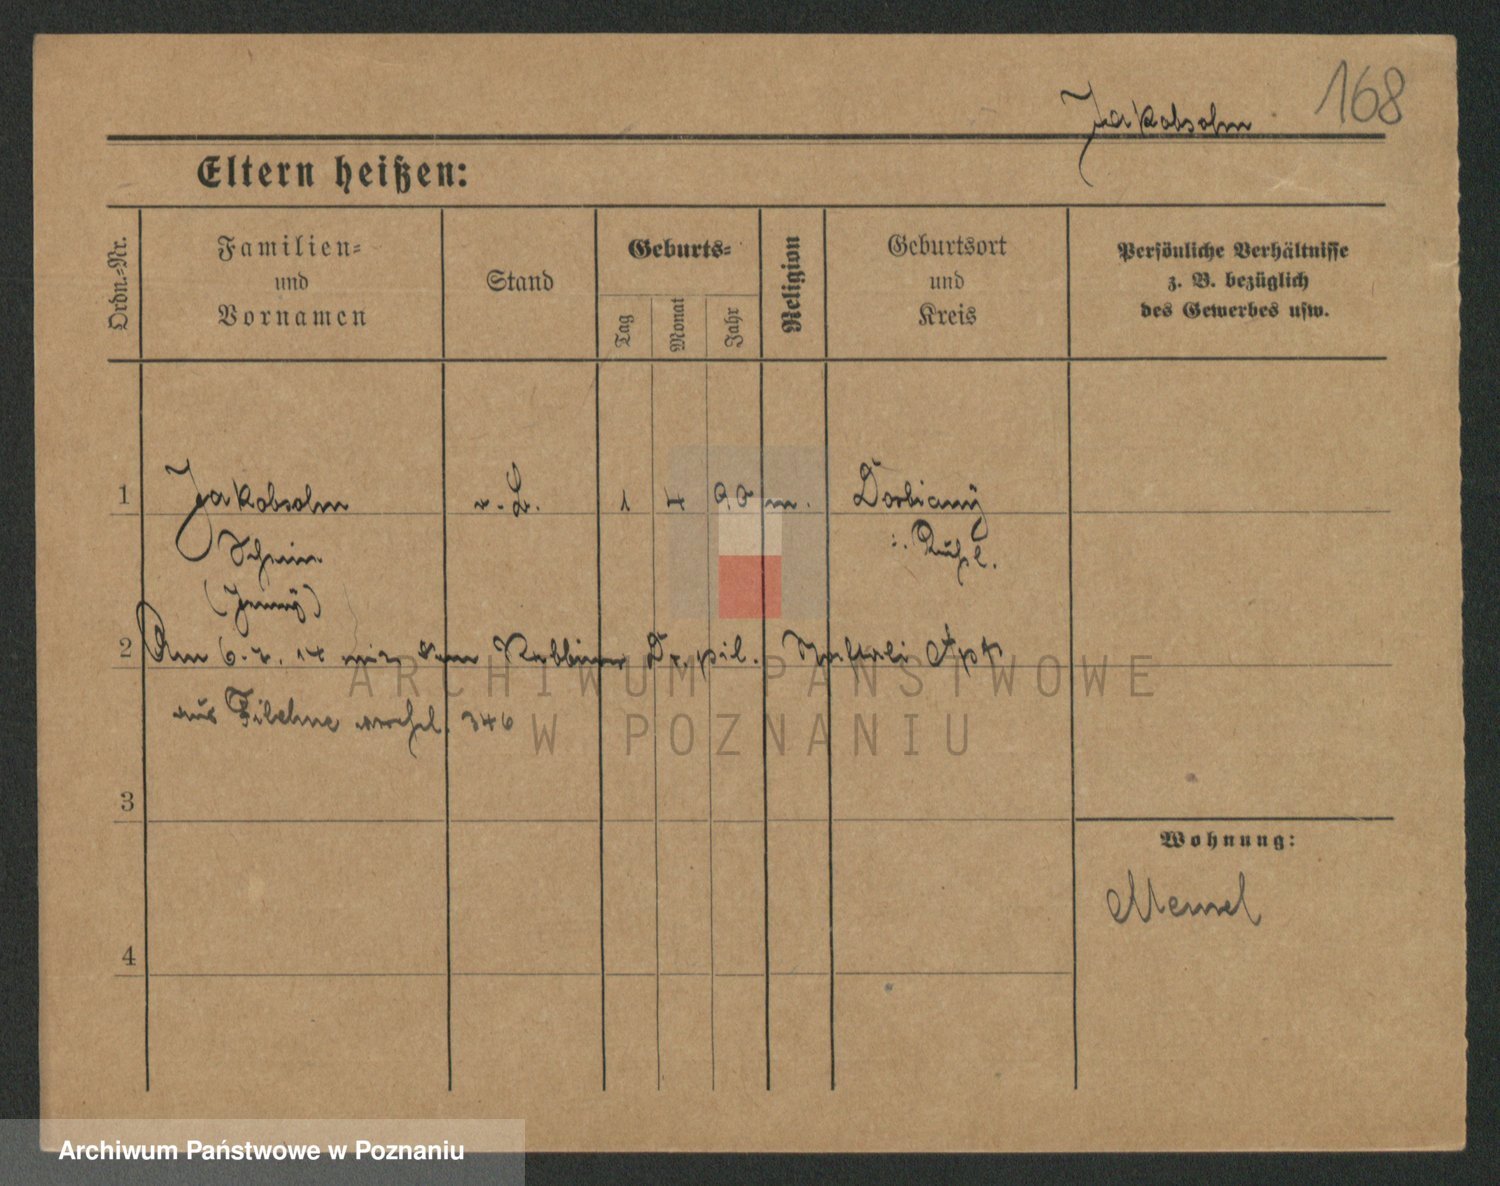 168
Jakobsohn
Eltern heißen:
Ordn.-Nr.
Familien-
und
Vornamen
Stand
Geburts-
Tag
Monat
Jahr
Religion
Geburtsort
und
Kreis
Persönliche Verhältnisse
z. B. bezüglich
des Gewerbes usw.
1 Jakobsohn 1 4 90 m. Dorbiany
(Jenny)
2 Am 6. 14 mit dem Rabbiner Dr. phil. Naftali Apt
aus Filehne verehel. 346
3
Wohnung:
Memel
4
ARCHIWUM PAŃSTWOWE
W POZNANIU
Archiwum Państwowe w Poznaniu